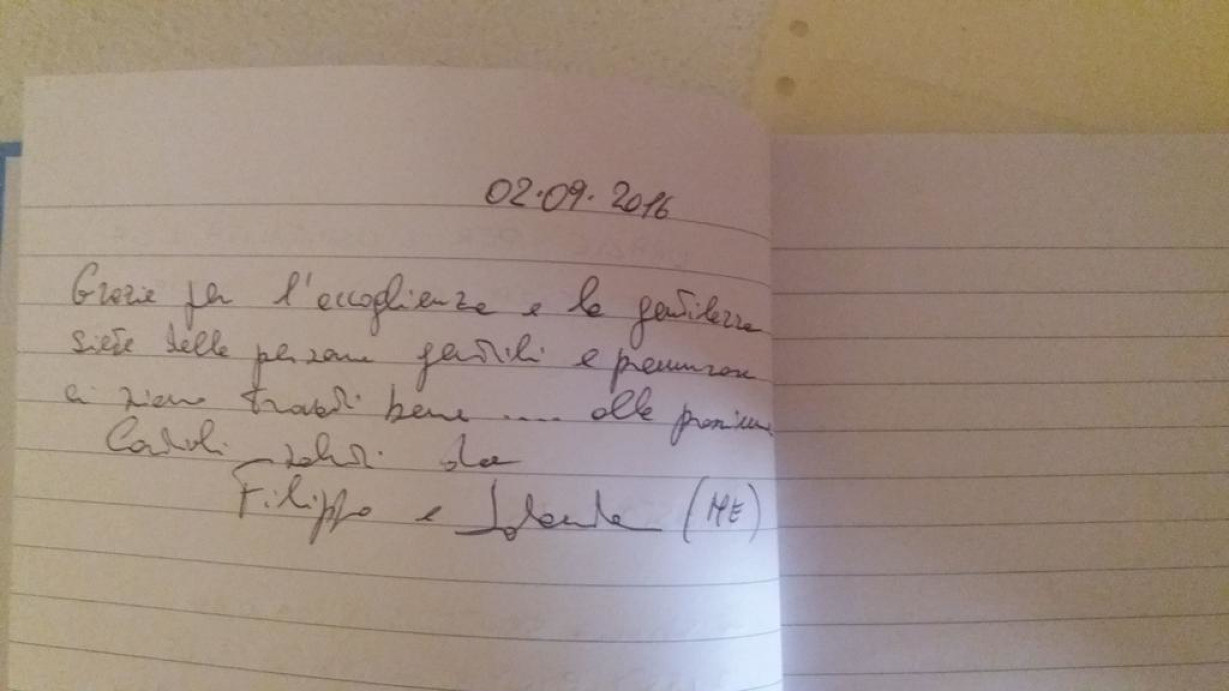 02.09.2016
Grazie per l'accoglienza e la gentilezza
siete delle persone gentili e premurose
ci siamo trovati bene .... alla prossima
Cordiali saluti da
Filippo e Iolanda (ME)